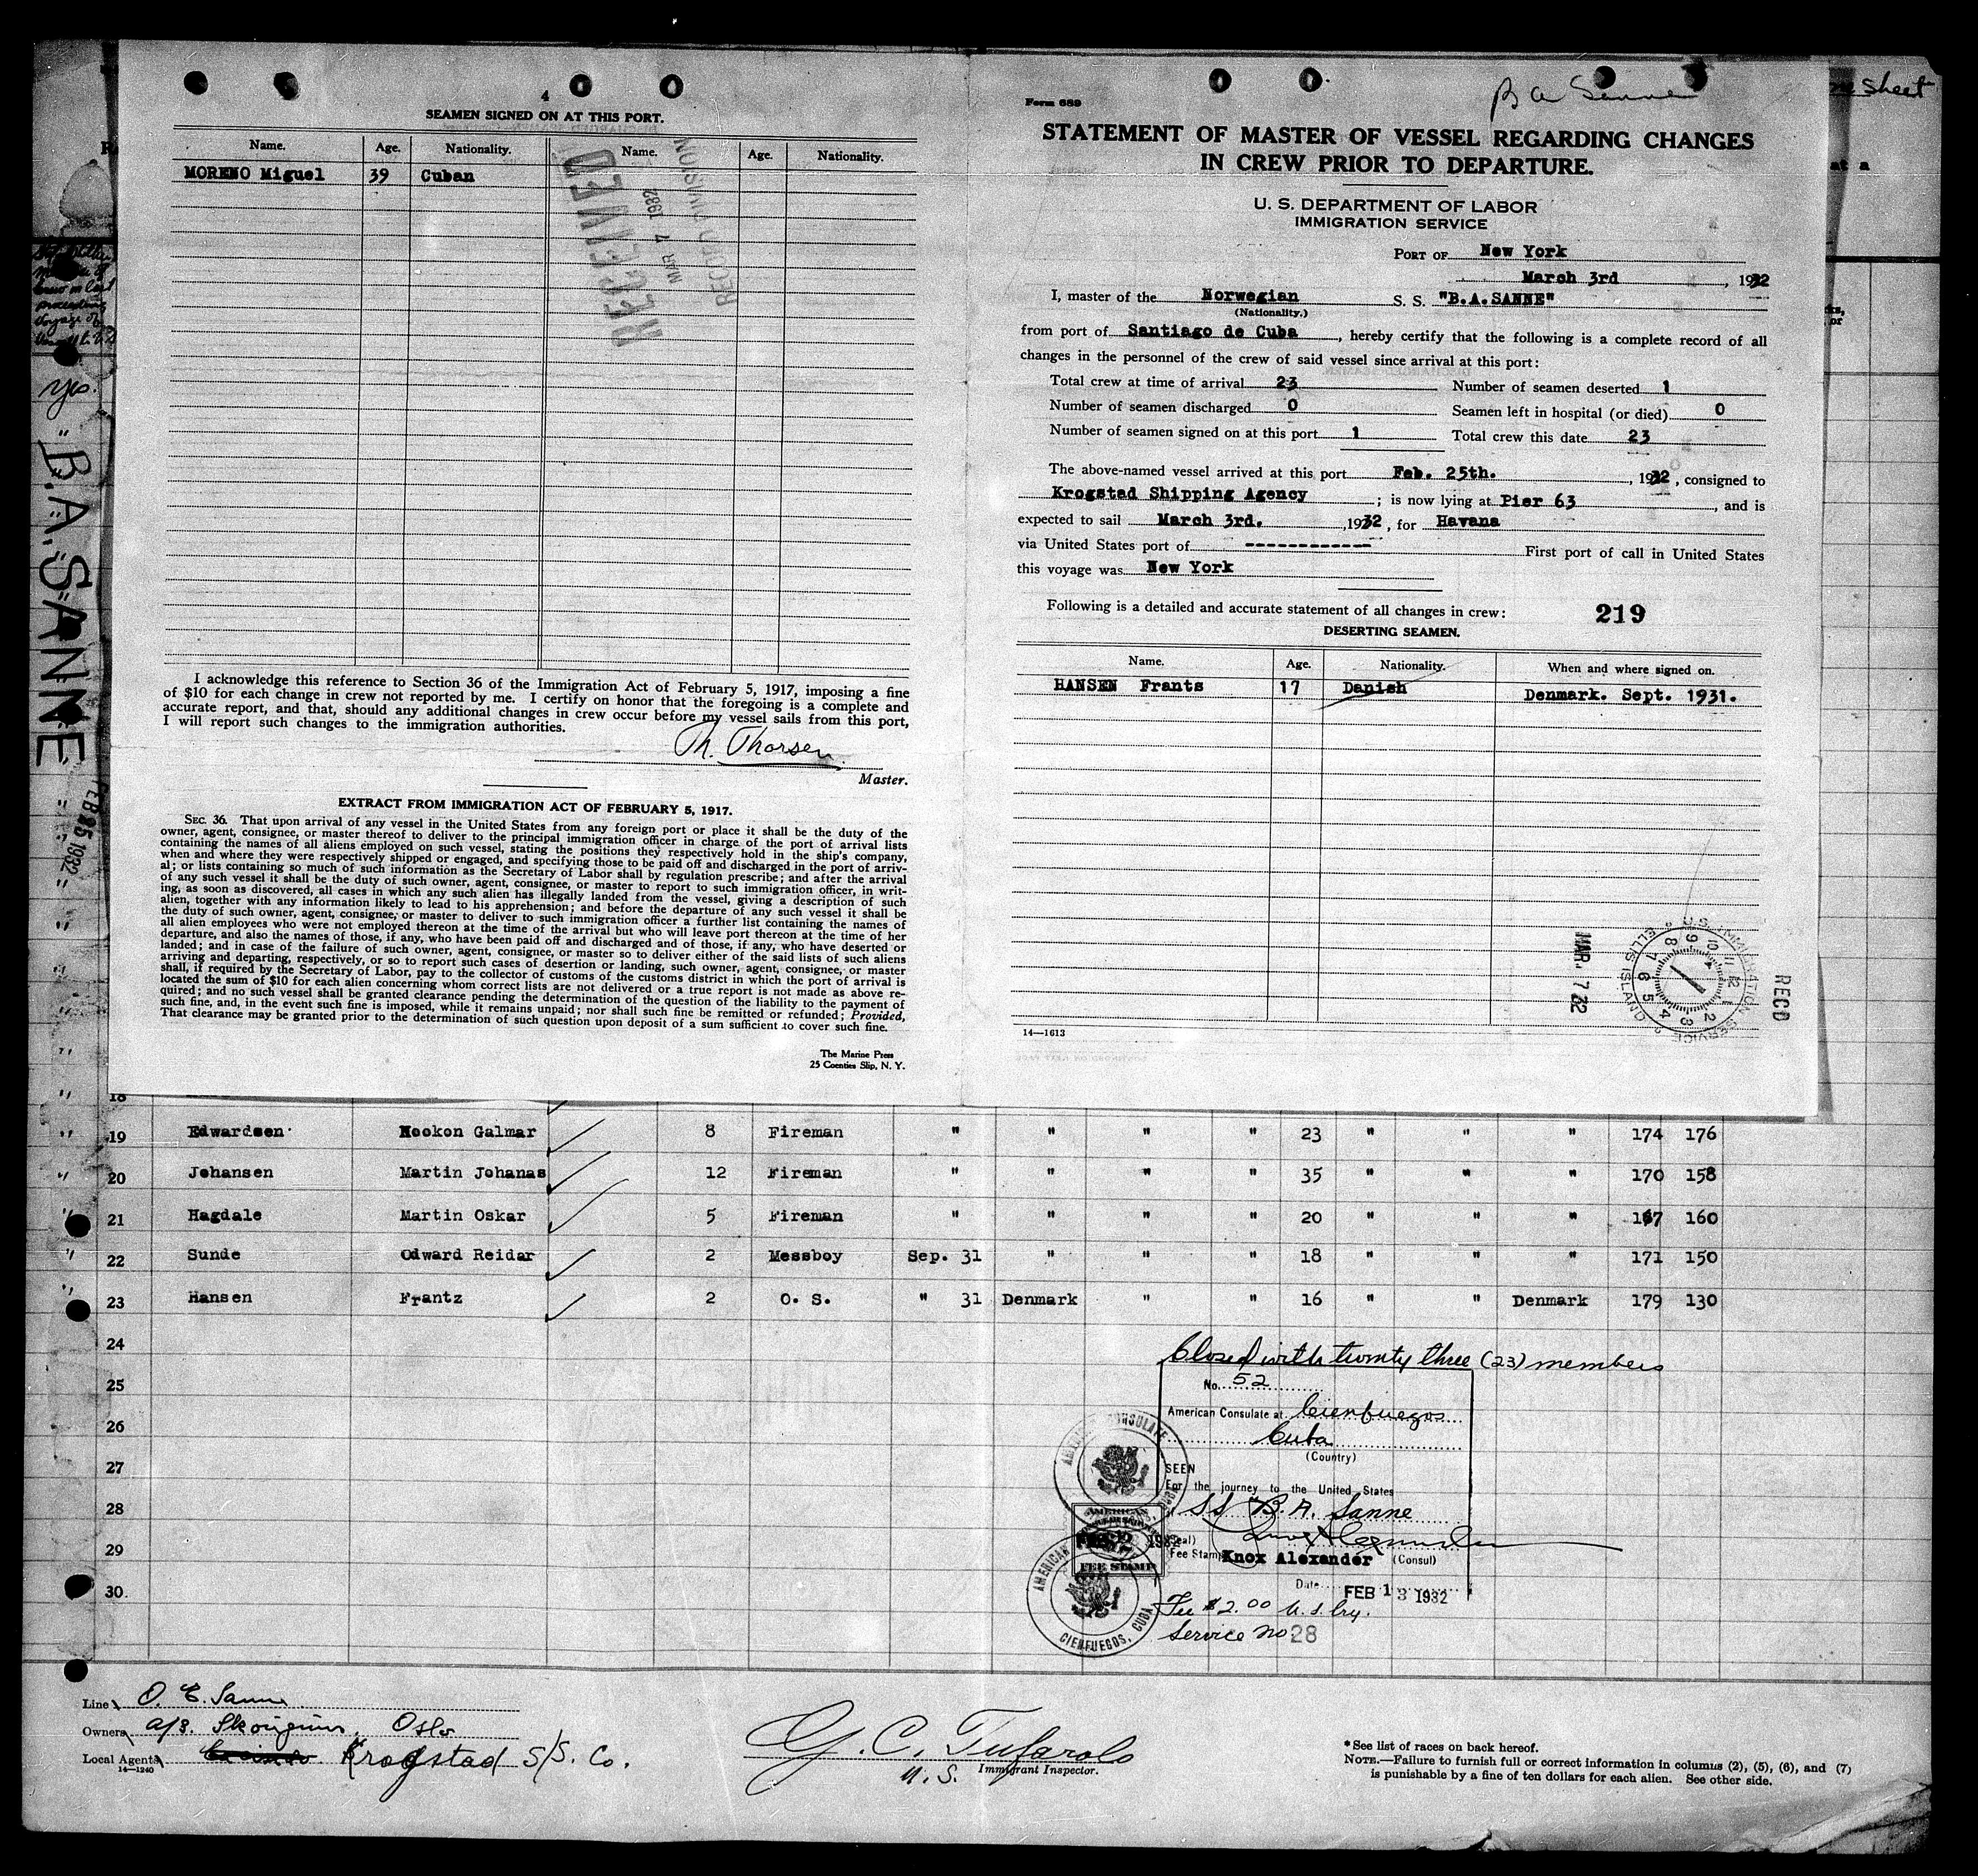 4
SEAMEN SIGNED ON AT THIS PORT.
Name. Age. Nationality. Name. Age. Nationality.
MORENO Miguel 39 Cuban
RECEIVED
MAR 7 1932
RECORD DIVISION
I acknowledge this reference to Section 36 of the Immigration Act of February 5, 1917, imposing a fine
of $10 for each change in crew not reported by me. I certify on honor that the foregoing is a complete and
accurate report, and that, should any additional changes in crew occur before my vessel sails from this port,
I will report such changes to the immigration authorities.
Th. Thorsen
Master.
EXTRACT FROM IMMIGRATION ACT OF FEBRUARY 5, 1917.
SEC. 36. That upon arrival of any vessel in the United States from any foreign port or place it shall be the duty of the
owner, agent, consignee, or master thereof to deliver to the principal immigration officer in charge of the port of arrival lists
containing the names of all aliens employed on such vessel, stating the positions they respectively hold in the ship's company,
when and where they were respectively shipped or engaged, and specifying those to be paid off and discharged in the port of arriv-
al; or lists containing so much of such information as the Secretary of Labor shall by regulation prescribe; and after the arrival
of any such vessel it shall be the duty of such owner, agent, consignee, or master to report to such immigration officer, in writ-
ing, as soon as discovered, all cases in which any such alien has illegally landed from the vessel, giving a description of such
alien, together with any information likely to lead to his apprehension; and before the departure of any such vessel it shall be
the duty of such owner, agent, consignee, or master to deliver to such immigration officer a further list containing the names of
all alien employees who were not employed thereon at the time of the arrival but who will leave port thereon at the time of her
departure, and also the names of those, if any, who have been paid off and discharged and of those, if any, who have deserted or
landed; and in case of the failure of such owner, agent, consignee, or master so to deliver either of the said lists of such aliens
arriving and departing, respectively, or so to report such cases of desertion or landing, such owner, agent, consignee, or master
shall, if required by the Secretary of Labor, pay to the collector of customs of the customs district in which the port of arrival is
located the sum of $10 for each alien concerning whom correct lists are not delivered or a true report is not made as above re-
quired; and no such vessel shall be granted clearance pending the determination of the question of the liability to the payment of
such fine, and, in the event such fine is imposed, while it remains unpaid; nor shall such fine be remitted or refunded; Provided,
That clearance may be granted prior to the determination of such question upon deposit of a sum sufficient to cover such fine.
The Marine Press
25 Coenties Slip, N. Y.
Form 689
B A Sanne
STATEMENT OF MASTER OF VESSEL REGARDING CHANGES
IN CREW PRIOR TO DEPARTURE.
U. S. DEPARTMENT OF LABOR
IMMIGRATION SERVICE
PORT OF New York
March 3rd, 1932
I, master of the Norwegian S. S. "B.A.SANNE"
(Nationality.)
from port of Santiago de Cuba, hereby certify that the following is a complete record of all
changes in the personnel of the crew of said vessel since arrival at this port:
Total crew at time of arrival 23 Number of seamen deserted 1
Number of seamen discharged 0 Seamen left in hospital (or died) 0
Number of seamen signed on at this port 1 Total crew this date 23
The above-named vessel arrived at this port Feb. 25th., 1932, consigned to
Krogstad Shipping Agency; is now lying at Pier 63, and is
expected to sail March 3rd., 1932, for Havana
via United States port of ------------ First port of call in United States
this voyage was New York
Following is a detailed and accurate statement of all changes in crew: 219
DESERTING SEAMEN.
Name. Age. Nationality. When and where signed on.
HANSEN Frants 17 Danish Denmark. Sept. 1931.
14—1613
MAR. 7 32
U.S. IMMIGRATION SERVICE
ELLIS ISLAND
RECD
sheet
at a
yes.
B.A.SANNE
FEB 25 1932
18
19 Edwardsen Hookon Galmar 8 Fireman " " " " 23 " " " 174 176
20 Johansen Martin Johanas 12 Fireman " " " " 35 " " " 170 158
21 Hagdale Martin Oskar 5 Fireman " " " " 20 " " " 167 160
22 Sunde Odward Reidar 2 Messboy Sep. 31 " " " 18 " " " 171 150
23 Hansen Frantz 2 O. S. " 31 Denmark " " 16 " " Denmark 179 130
24
25
26
27
28
29
30
Closed with twenty three (23) members
No. 52
American Consulate at Cienfuegos
Cuba
(Country)
SEEN
For the journey to the United States
SS B. A. Sanne
Fee Stamp Knox Alexander (Consul)
Date FEB 13 1932
Fee $2.00 U.S. Cry.
Service No 28
AMERICAN CONSULATE
AMERICAN
FEE STAMP
CIENFUEGOS, CUBA
Line O. E. Sanne
Owners A/S. Skougium, Oslo
Local Agents Krogstad S/S. Co.
14—1240
G. C. Tufarolo
U. S. Immigrant Inspector.
* See list of races on back hereof.
NOTE.—Failure to furnish full or correct information in columns (2), (5), (6), and (7)
is punishable by a fine of ten dollars for each alien. See other side.